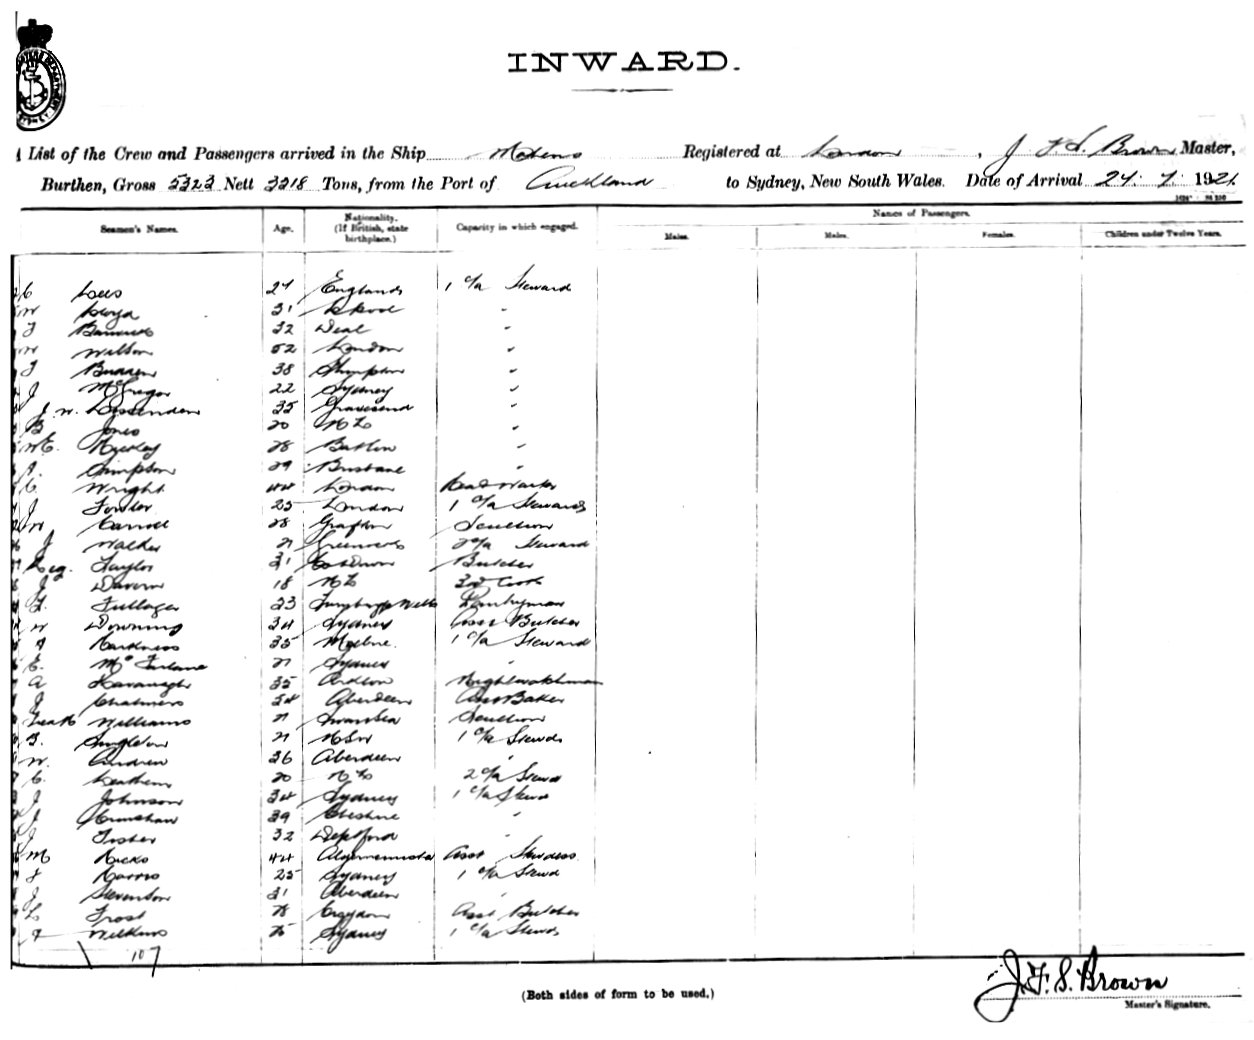 INWARD.
List of the Crew and Passengers arrived in the Ship Makura Registered at London, J. F. S. Brown Master,
Burthen, Gross 5323 Nett 3218 Tons, from the Port of Auckland to Sydney, New South Wales. Date of Arrival 24. 7. 1921.
Seamen's Names. Age. Nationality. (If British, state birthplace.) Capacity in which engaged. Names of Passengers.
Males. Males. Females. Children under Twelve Years.
C Lees 27 England 1 c/a Steward
W Lloyd 31 L'pool "
32 Deal "
W Wilson 52 London "
38 "
J McGregor 22 Sydney "
J. W. 35 Gravesend "
B Jones 20 NZ "
W E. 28 "
A. Simpson 29 Brisbane "
C Wright 44 London
J Fowler 25 London 1 c/a Steward
W Carroll 28 Grafton Scullion
J Walker 21 2 c/a Steward
Reg. Taylor 31 Butcher
J Davern 18 NZ 3rd Cook
F. Fullager 23 Tunbridge Wells Pantryman
W Downing 34 Sydney Asst Butcher
Harkness 35 Melbne. 1 c/a Steward
E. McFarlane 21 Sydney "
A Kavanagh 35 Nightwatchman
J Chalmers 24 Aberdeen Asst Baker
Williams 21 Swansea Scullion
Singleton 21 NSW 1 c/a Stewd
W. Andrew 26 Aberdeen "
C. Leathem 20 NZ 2 c/a Stewd
J Johnson 34 Sydney 1 c/a Stewd
J Crawshaw 39 Cheshire "
J Fisher 32 Deptford "
M Hicks 44 Asst Stewdess
Harris 25 Sydney 1 c/a Stewd
J Stevenson 31 Aberdeen "
L Frost 28 Croydon Asst Butcher
Wilkins 25 Sydney 1 c/a Stewd
107
J. F. S. Brown
(Both sides of form to be used.)
Master's Signature.